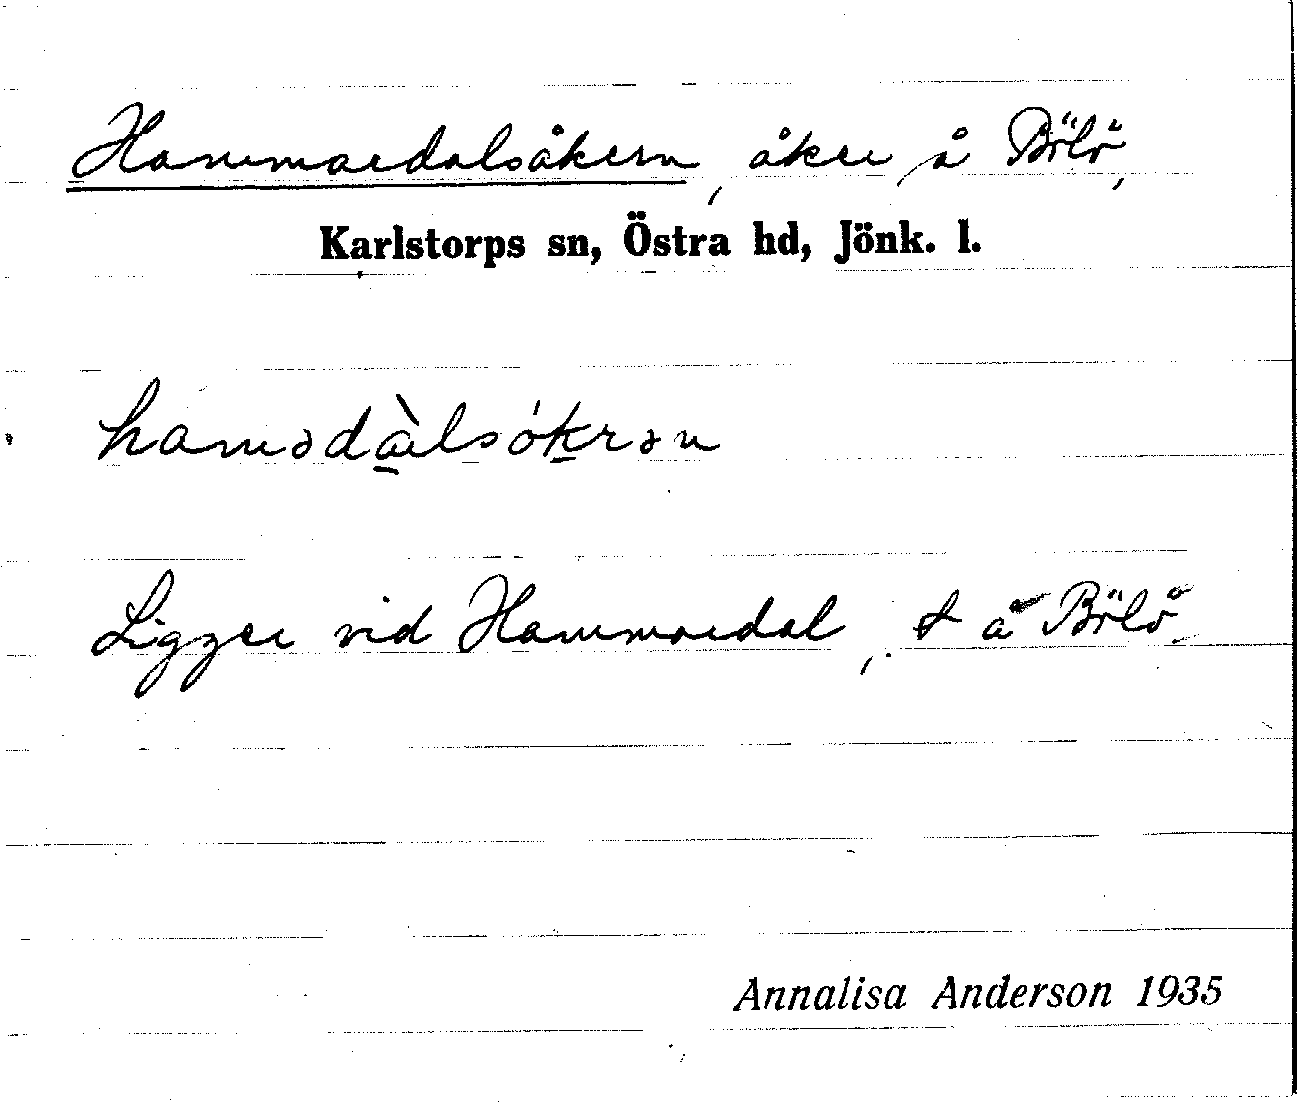 Hammardalsåkern, åker å Bölö,
Karlstorps sn, Östra hd, Jönk. l.
hamədà̱lsóḵrən
Ligger vid Hammardal, t å Bölö
Annalisa Anderson 1935